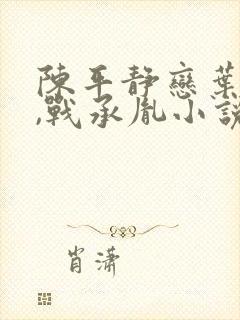 陳平靜戀葉
,戰承胤小說
肖瀟